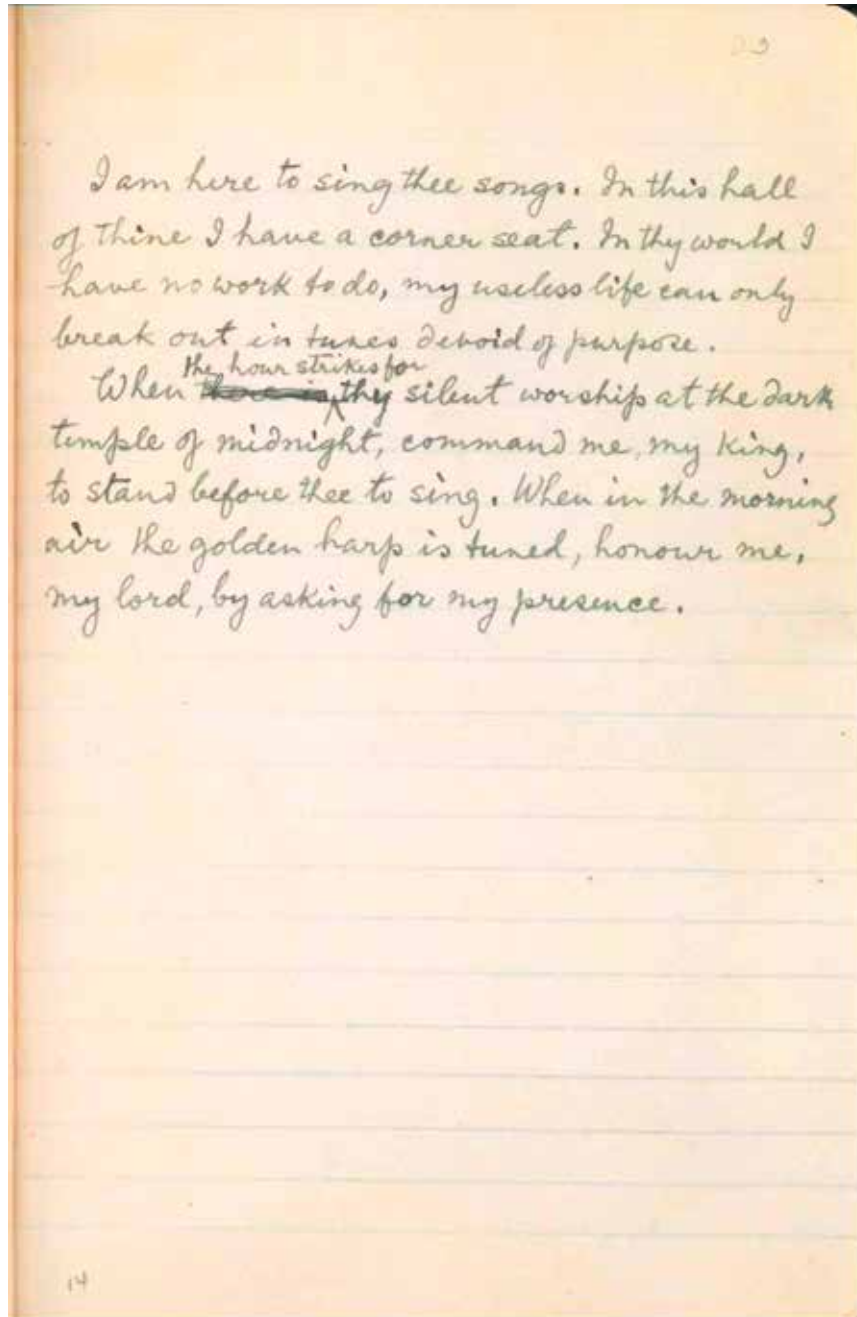 I am here to sing thee songs. In this hall
of thine I have a corner seat. In thy world I
have no work to do, my useless life can only
break out in tunes devoid of purpose.
the hour strikes for
When there is thy silent worship at the dark
temple of midnight, command me, my king,
to stand before thee to sing. When in the morning
air the golden harp is tuned, honour me,
my lord, by asking for my presence.
14